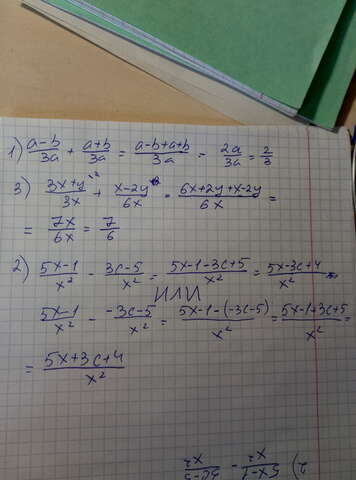 1) a-b/3a + a+b/3a = a-b+a+b/3a = 2a/3a = 2/3
3) 3x+y/3x ^{×2} + x-2y/6x = 6x+2y+x-2y/6x =
= 7x/6x = 7/6
2) 5x-1/x² - 3c-5/x² = 5x-1-3c+5/x² = 5x-3c+4/x²
ИЛИ
5x-1/x² - -3c-5/x² = 5x-1-(-3c-5)/x² = 5x-1+3c+5/x² =
= 5x+3c+4/x²